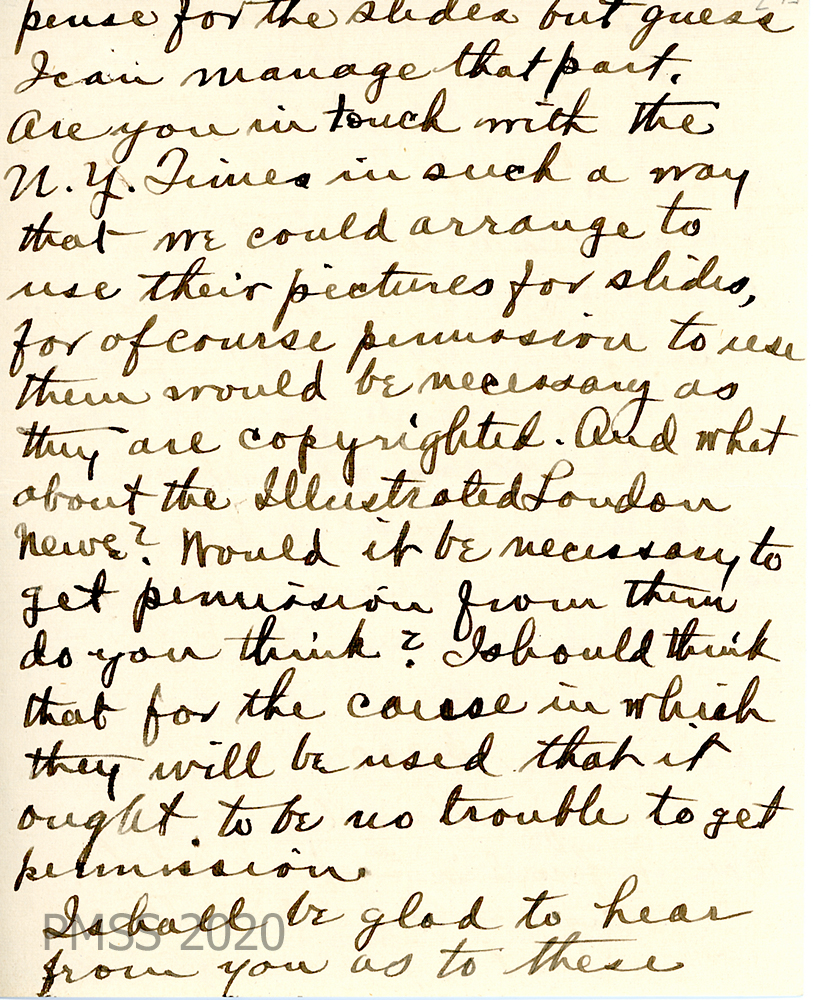 pense for the slides but guess
I can manage that part.
Are you in touch with the
N.Y. Times in such a way
that we could arrange to
use their pictures for slides,
for of course permission to use
them would be necessary as
they are copyrighted. And what
about the Illustrated London
News? Would it be necessary to
get permission from them
do you think? I should think
that for the cause in which
they will be used that it
ought to be no trouble to get
permission.
I shall be glad to hear
PMSS 2020
from you as to these